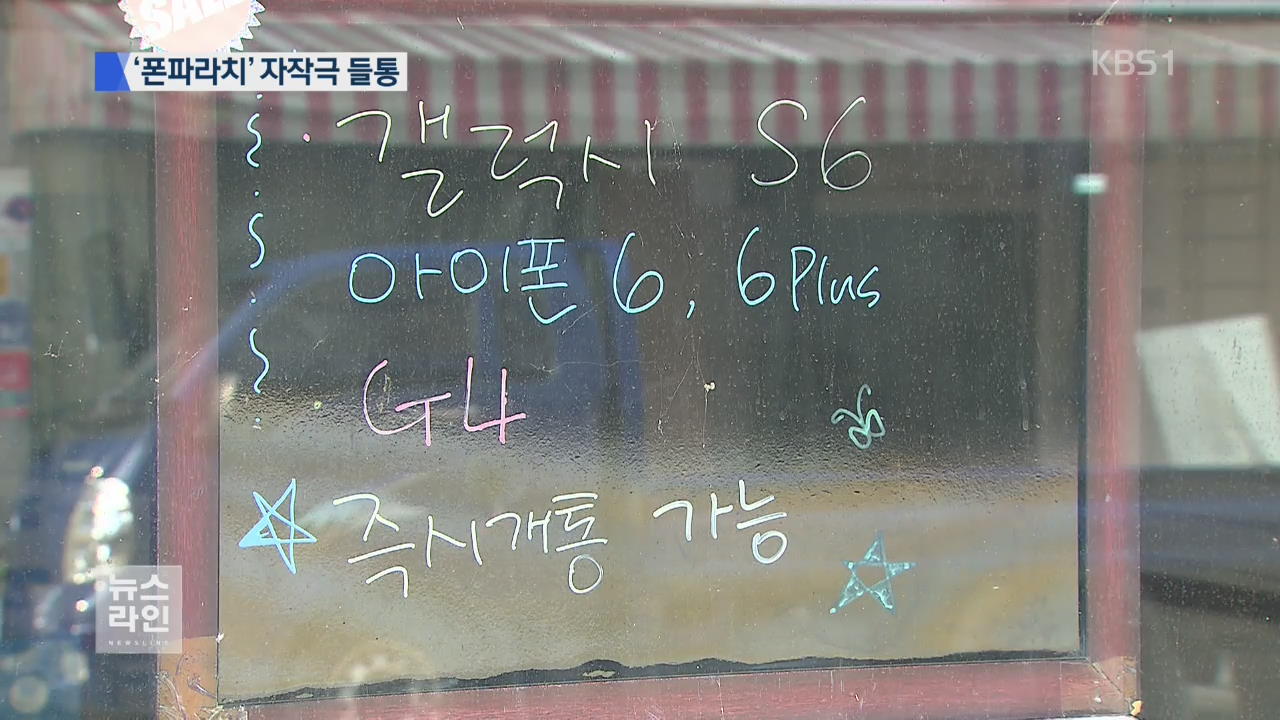 SALE
‘폰파라치’ 자작극 들통
KBS1
갤럭시 S6
아이폰 6, 6Plus
G4
즉시개통 가능
뉴스
라인
NEWSLINE